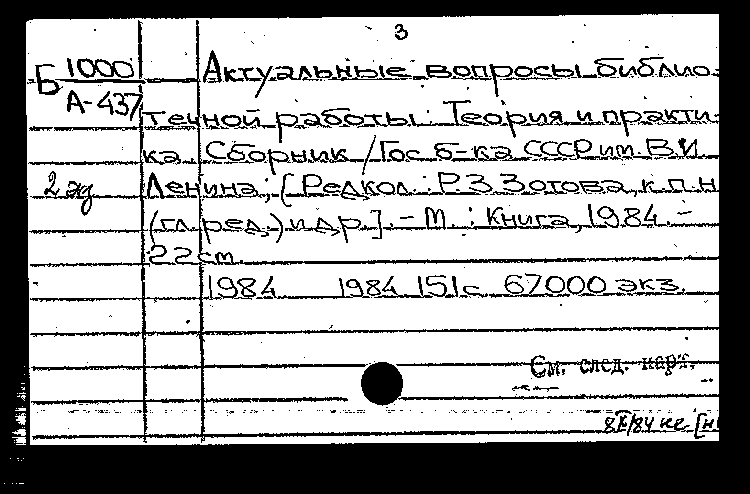 3
Б 1000 Актуальные вопросы библио-
А-437 течной работы: Теория и практи-
ка. Сборник / Гос. б-ка СССР им. В.И.
2 эд Ленина; [Редкол.: Р.З. Зотова, к.п.н
(гл. ред.) и др.]. - М.: Книга, 1984. -
22 см.
1984 1984 151 с. 67000 экз.
См. след. карт.